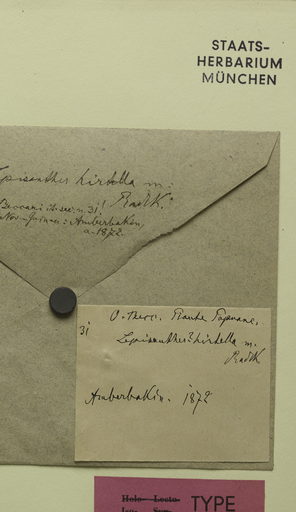 STAATS-
HERBARIUM
MÜNCHEN
Lepisanthes hirtella m.
Beccari it. sec. n. 31! Radlk.
Nov. Guinea: Amberbaken,
a. 1872.
31
Piante Papuane.
Lepisanthes? hirtella m.
Radlk
Amberbakin. 1872
Holo- Lecto-
Iso- Syn-
TYPE